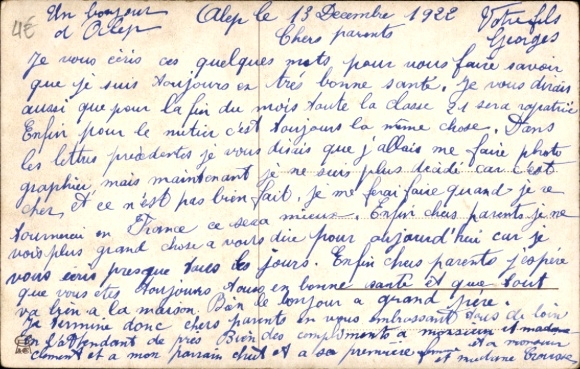 4€
Un bonjour
d'Alep
Alep le 13 Decembre 1922
Votre fils
Georges
Chers parents
Je vous écris ces quelques mots pour vous faire savoir
que je suis toujours en très bonne santé. Je vous dirais
aussi que pour la fin du mois toute la classe 21 sera rapatriée
Enfin pour le métier c'est toujours la même chose. Dans
les lettres précédentes je vous disais que j'allais me faire photo
graphier, mais maintenant je ne suis plus décidé car c'est
cher et ce n'est pas bien fait, je me ferai faire quand je re
tournerai en France ce sera mieux. Enfin chers parents je ne
vois plus grand chose a vous dire pour aujourd'hui car je
vous écris presque tous les jours. Enfin chers parents j'espère
que vous êtes toujours tous en bonne santé et que tout
va bien a la maison. Bien le bonjour a grand père.
Je termine donc chers parents en vous embrassant tous de loin
en l'attendant de près Bien des compliments a monsieur et madame
Clement et a mon parrain et a sa première et a monsieur
et madame